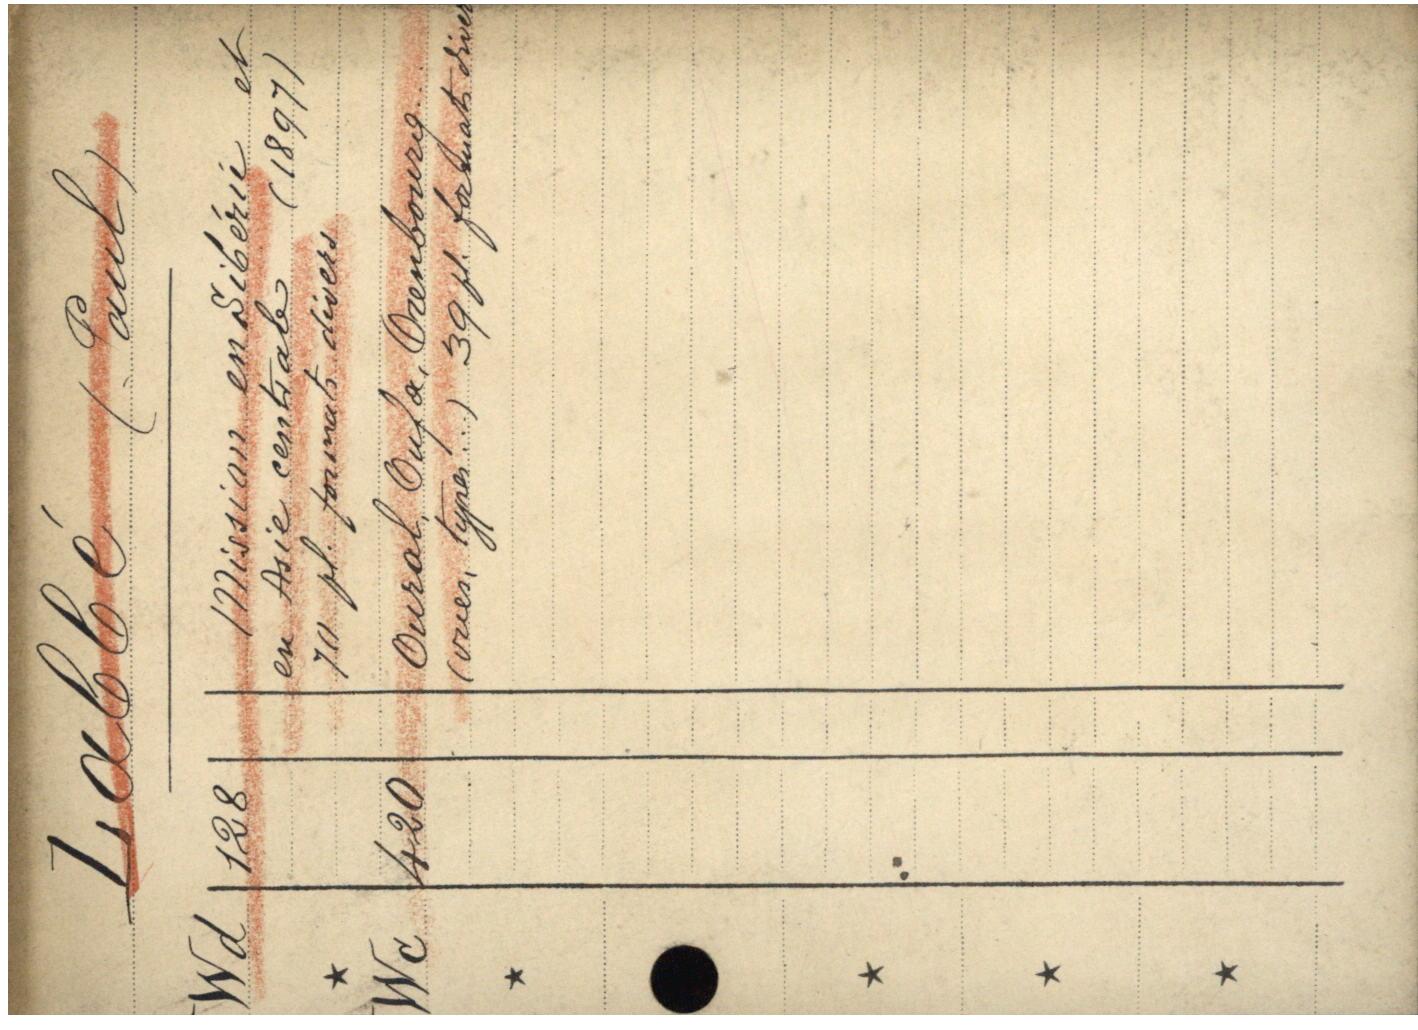 Labbé (Paul)
Wd 128 Mission en Sibérie et
en Asie centrale (1897)
70 pl. formats divers
Wc 420 Oural, Oufa, Orenbourg.
(vues, types...) 39 pl. formats diver